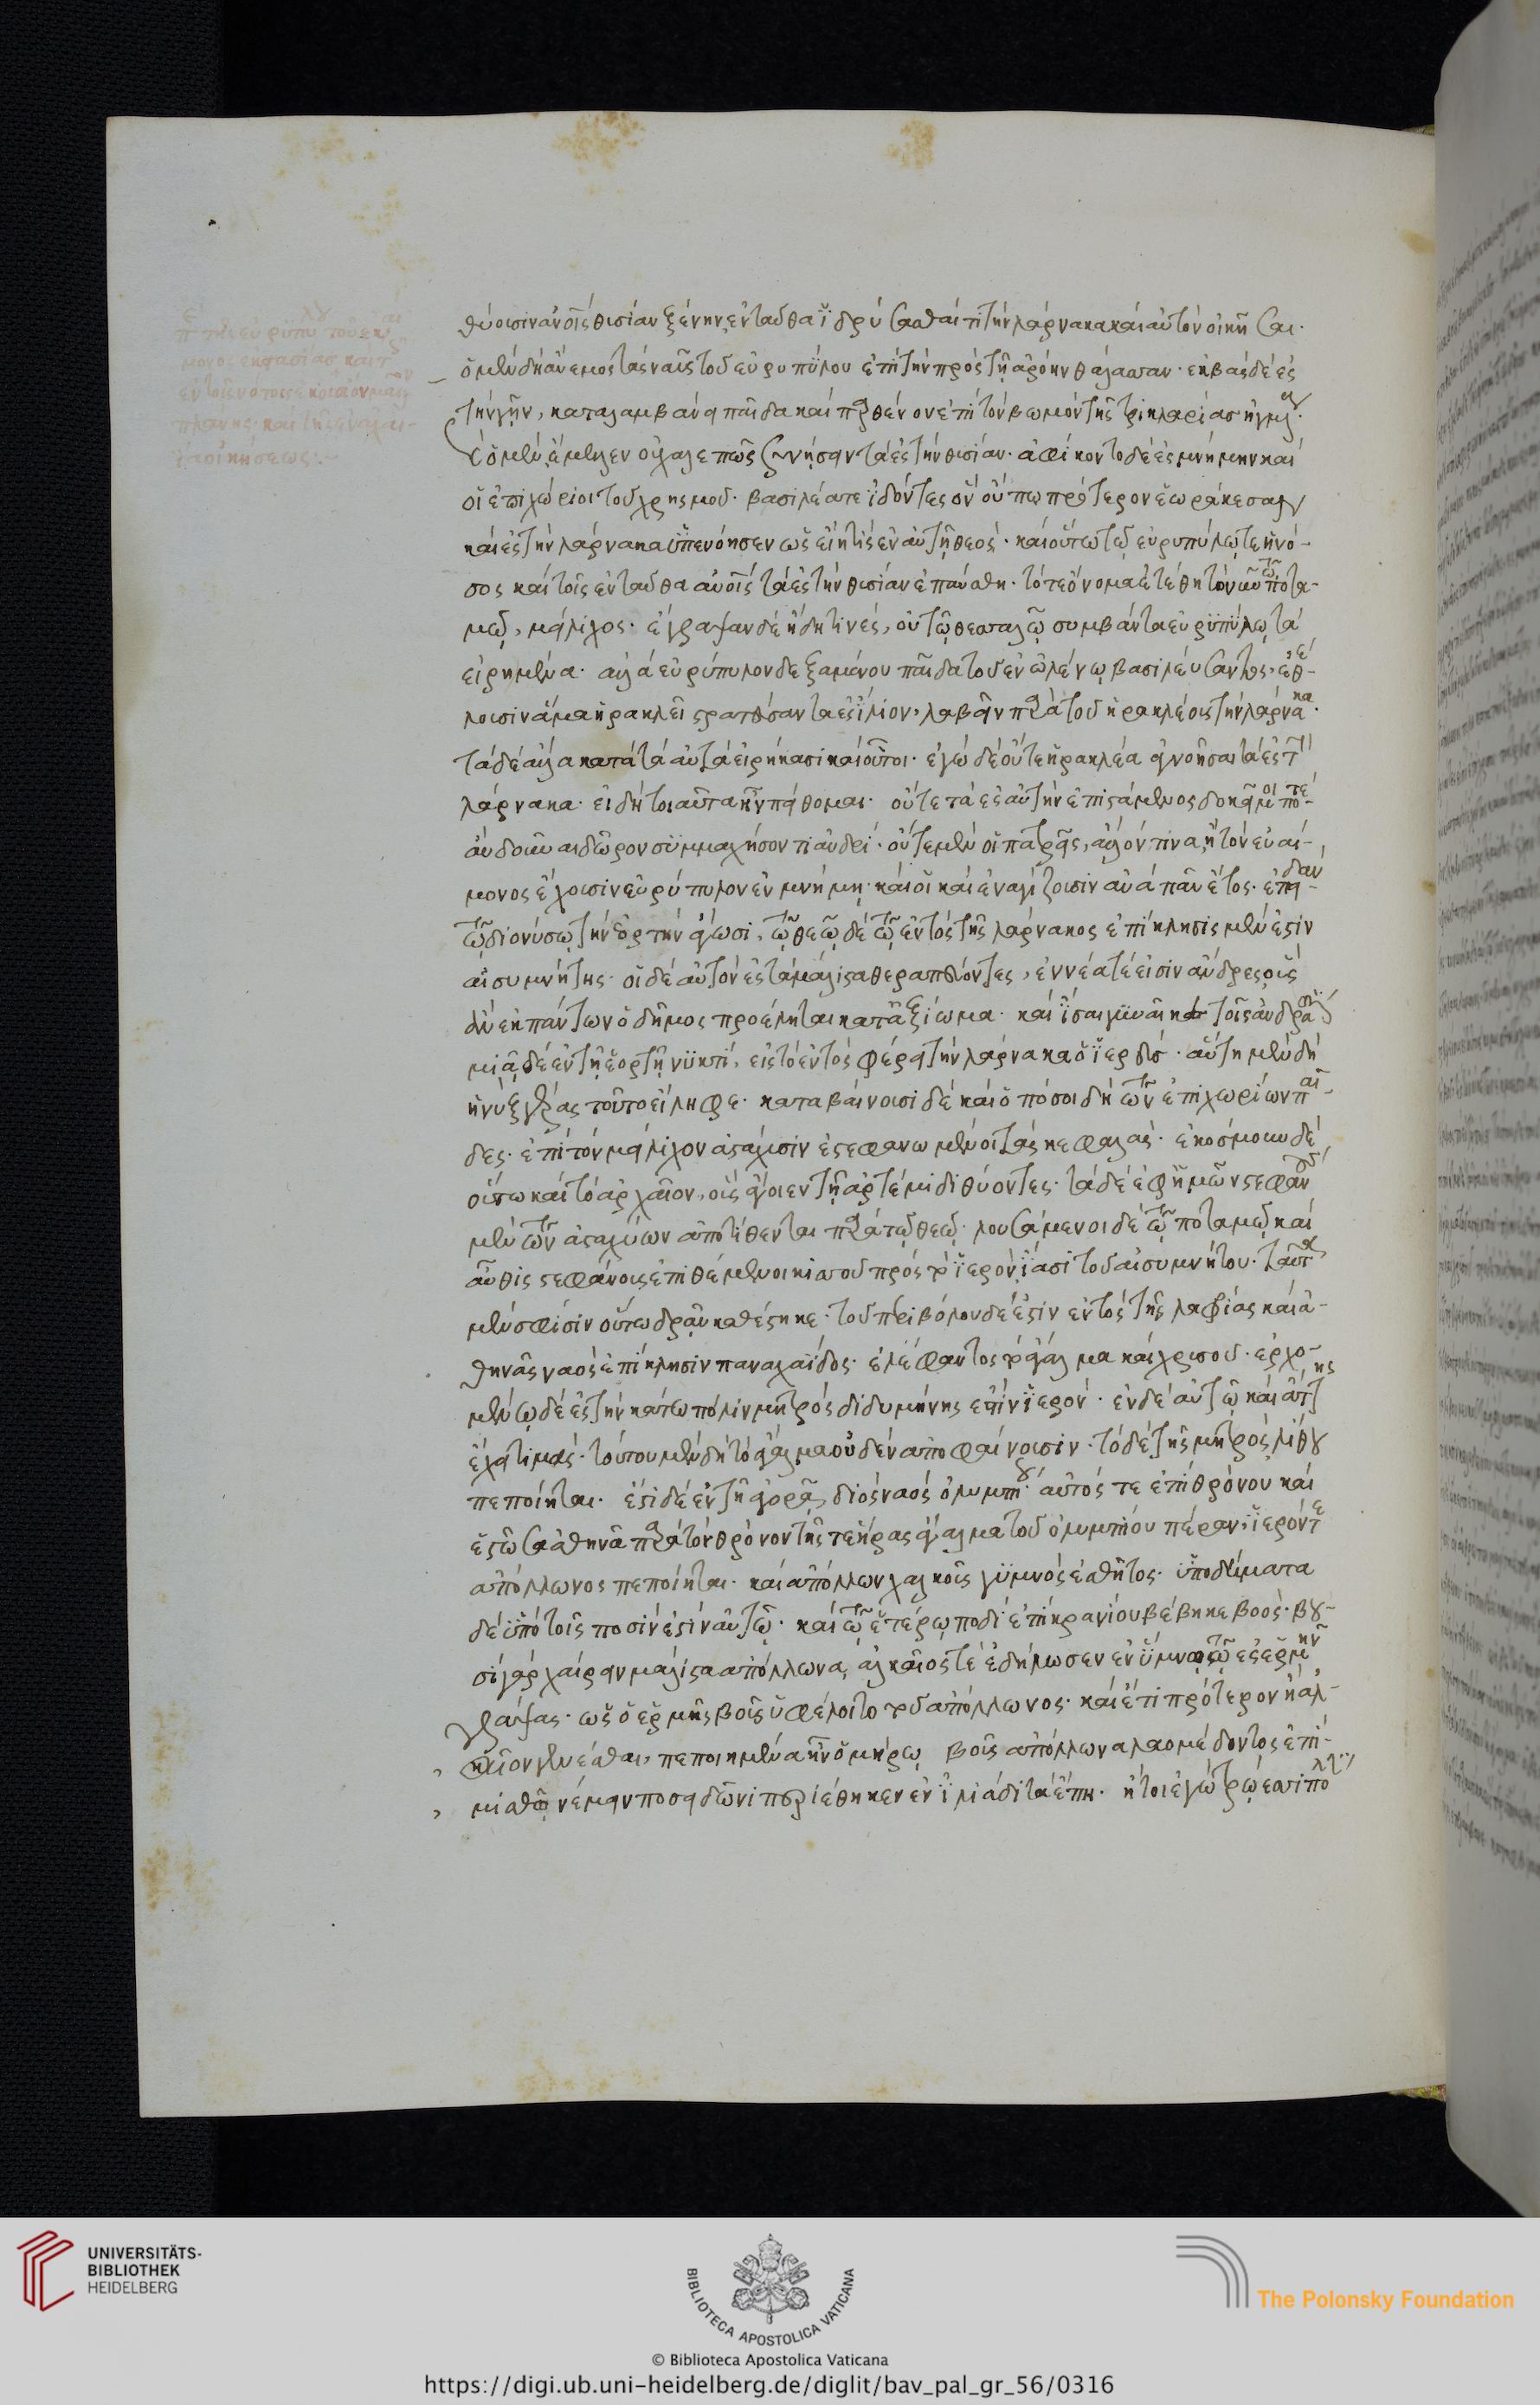 περὶ τῆς εὐρυπύλου τοῦ εὐαί
πλάνης· καὶ τῆς ἐν ἀχαί-
ᾳ οἰκήσεως:~
θύουσιν ἀνοῖς θυσίαν ξένην, ἐνταῦθα ἱδρύσασθαί τὲ τὴν λάρνακα καὶ αὐτὸν οἰκῆσαι·
ὁ μὲν δὴ ἄνεμος τὰς ναῦς τοῦ εὐρυπύλου ἐπὶ τὴν πρὸς τῇ ἀρόῃ θάλασσαν· ἐκβὰς δὲ ἐς
τὴν γῆν, καταλαμβάνει παῖδα καὶ παρθένον ἐπὶ τὸν βωμὸν τῆς τρικλαρίας ἠγμένα·
καὶ ὁ μὲν ἔμελλεν οὐ χαλεπῶς συνήσειν τὰ ἐς τὴν θυσίαν· ἀφίκοντο δὲ ἐς μνήμην καὶ
οἱ ἐπιχώριοι τοῦ χρησμοῦ· βασιλέα τε ἰδόντες ὃν οὔπω πρότερον ἑωράκεσαν
καὶ ἐς τὴν λάρνακα ὑπενόησεν ὡς εἴη τὶς ἐν αὐτῇ θεός· καὶ οὕτω τῷ εὐρυπύλῳ τε ἡ νό-
σος καὶ τοῖς ἐνταῦθα ἀνοῖς τὰ ἐς τὴν θυσίαν ἐπαύσθη· τό τε ὄνομα ἐτέθη τὸ νῦν τῷ ποτα-
μῷ, μείλιχος· ἔγραψαν δὲ ἤδη τινές, οὐ τῷ θεσσαλῷ συμβάντα εὐρυπύλῳ τὰ
εἰρημένα· ἀλλὰ εὐρύπυλον δεξαμένου παῖδα τοῦ ἐν ὠλένῳ βασιλεύσαντος, ἐθέ-
λουσιν ἅμα ἡρακλεῖ στρατεύσαντα ἐς ἴλιον, λαβεῖν παρὰ τοῦ ἡρακλέους τὴν λάρνακα·
τὰ δὲ ἄλλα κατὰ τὰ αὐτὰ εἰρήκασι καὶ οὗτοι· ἐγὼ δὲ οὔτε ἡρακλέα ἀγνοῆσαι τὰ ἐς τὴν
λάρνακα· εἰ δὴ τοιαῦτα ἦν πείθομαι· οὔτε τὰ ἐς αὐτὴν ἐπιστάμενος δοκεῖ μοί ποτε
ἂν δοῦναι δῶρον συμμαχήσοντι ἀνδρί· οὔτε μὲν οἱ πατρεῖς, ἄλλόν τινα, ἢ τὸν εὐαί-
μονος ἔχουσιν εὐρύπυλον ἐν μνήμῃ· καί οἱ καὶ ἐναγίζουσιν ἀνὰ πᾶν ἔτος· ἐπειδὰν
τῷ διονύσῳ τὴν ἑορτὴν ἄγωσι, τῷ θεῷ δὲ τῷ ἐντὸς τῆς λάρνακος ἐπίκλησις μὲν ἐστὶν
αἰσυμνήτης· οἱ δὲ αὐτὸν ἐς τὰ μάλιστα θεραπεύοντες, ἐννέα τέ εἰσιν ἄνδρες, οὓς
ἂν ἐκ πάντων ὁ δῆμος προέληται κατ' ἀξίωμα· καὶ ἴσαι γυναῖκες τοῖς ἀνδράσι
μιᾷ δὲ ἐν τῇ ἑορτῇ νυκτί, εἰς τὸ ἐντὸς φέρει τὴν λάρνακα ὁ ἱερεύς· αὕτη μὲν δὴ
ἡ νὺξ γέρας τοῦτο εἴληφε· καταβαίνουσι δὲ καὶ ὁπόσοι δὴ τῶν ἐπιχωρίων παῖ-
δες· ἐπὶ τὸν μείλιχον ἀσταχυσὶν ἐστεφανωμένοι τὰς κεφαλάς· ἐκόσμουν δὲ
οὕτω καὶ τὸ ἀρχαῖον, οὓς ἄγοιεν τῇ ἀρτέμιδι θύοντες· τὰ δὲ ἐφ' ἡμῶν στεφάνους
μὲν τῶν ἀσταχύων ἀποτίθενται παρὰ τῷ θεῷ· λουσάμενοι δὲ τῷ ποταμῷ καὶ
αὖθις στεφάνους ἐπιθέμενοι κισσοῦ πρὸς τὸ ἱερὸν ἴασι τοῦ αἰσυμνήτου· ταῦτα
μὲν σφίσιν οὕτω δρᾶν καθέστηκε· τοῦ περιβόλου δέ ἐστιν ἐντὸς τῆς λαφρίας καὶ ἀ-
θηνᾶς ναὸς ἐπίκλησιν παναχαΐδος· ἐλέφαντος τὸ ἄγαλμα καὶ χρυσοῦ· ἐρχο-
μένῳ δὲ ἐς τὴν κάτω πόλιν μητρὸς διδυμήνης ἐστὶν ἱερόν· ἐν δὲ αὐτῷ καὶ ἄττης
ἔχει τιμάς· τούτου μὲν δὴ τὸ ἄγαλμα οὐδὲν ἀποφαίνουσιν· τὸ δὲ τῆς μητρός, λίθου
πεποίηται· ἔστι δὲ ἐν τῇ ἀγορᾷ, διὸς ναὸς ὀλυμπίου· αὐτός τε ἐπὶ θρόνου καὶ
ἑστῶσα ἀθηνᾶ παρὰ τὸν θρόνον τῆς τε ἥρας ἄγαλμα τοῦ ὀλυμπίου πέραν· ἱερόν τε
ἀπόλλωνος πεποίηται· καὶ ἀπόλλων χαλκοῦς γυμνὸς ἐσθῆτος· ὑποδήματα
δὲ ὑπὸ τοῖς ποσὶν ἐστὶν αὐτῷ· καὶ τῷ ἑτέρῳ ποδὶ ἐπὶ κρανίου βέβηκε βοός· βου-
σὶ γὰρ χαίρειν μάλιστα ἀπόλλωνα, ἀλκαῖός τὲ ἐδήλωσεν ἐν ὕμνῳ τῷ ἐς ἑρμῆν
γράψας· ὡς ὁ ἑρμῆς βοῦς ὑφέλοιτο τοῦ ἀπόλλωνος· καὶ ἔτι πρότερον ἢ ἀλ-
καῖον γενέσθαι, πεποιημένα ἦν ὁμήρῳ βοῦς ἀπόλλωνα λαομέδοντος ἐπὶ
μισθῷ νέμειν ποσειδῶνι περιέθηκεν ἐν ἰλιάδι τὰ ἔπη· ἤτοι ἐγὼ τρώεσσι πόλιν
UNIVERSITÄTS-
BIBLIOTHEK
HEIDELBERG
BIBLIOTECA APOSTOLICA VATICANA
© Biblioteca Apostolica Vaticana
The Polonsky Foundation
https://digi.ub.uni-heidelberg.de/diglit/bav_pal_gr_56/0316